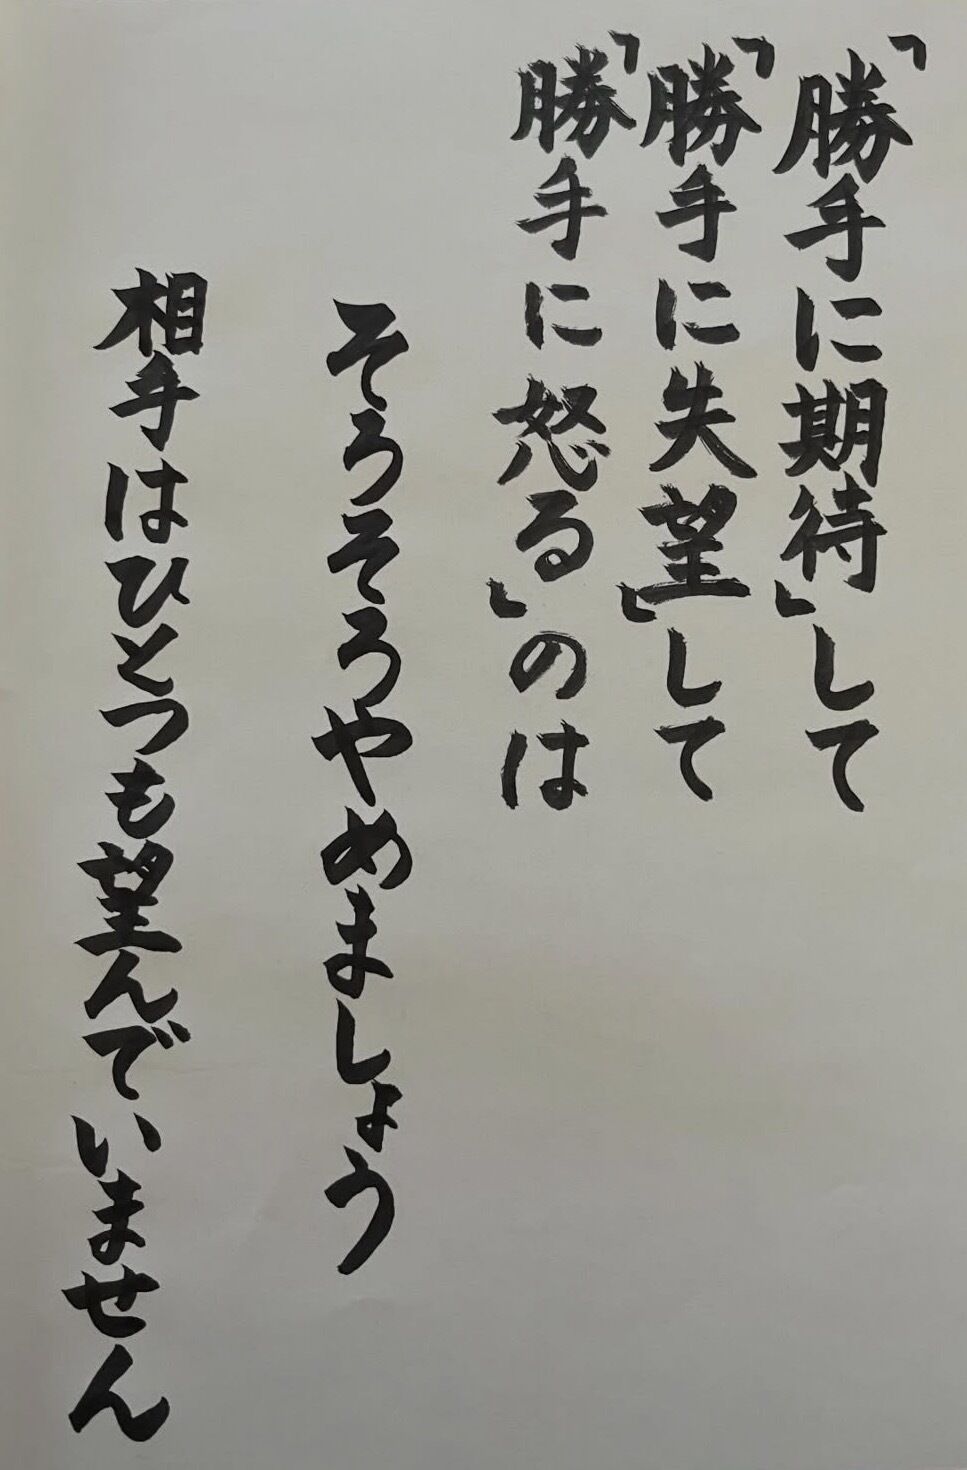 「勝手に期待」して
「勝手に失望」して
「勝手に怒る」のは
そろそろやめましょう
相手はひとつも望んでいません